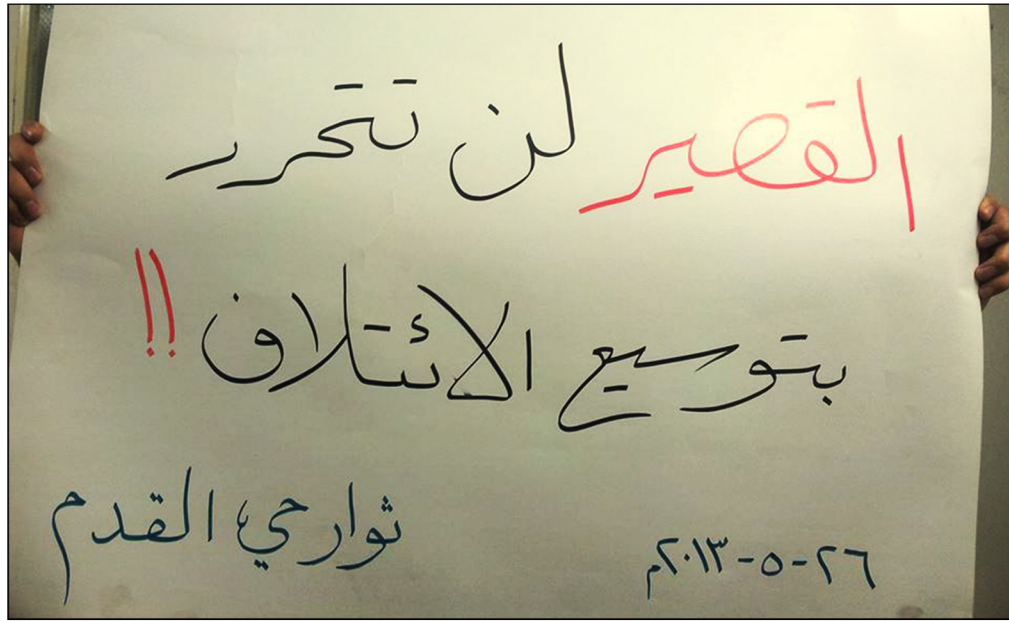 القصير لن تتحرر
بتوسيع الائتلاف !!
ثوار حي القدم
٢٦-٥-٢٠١٣م